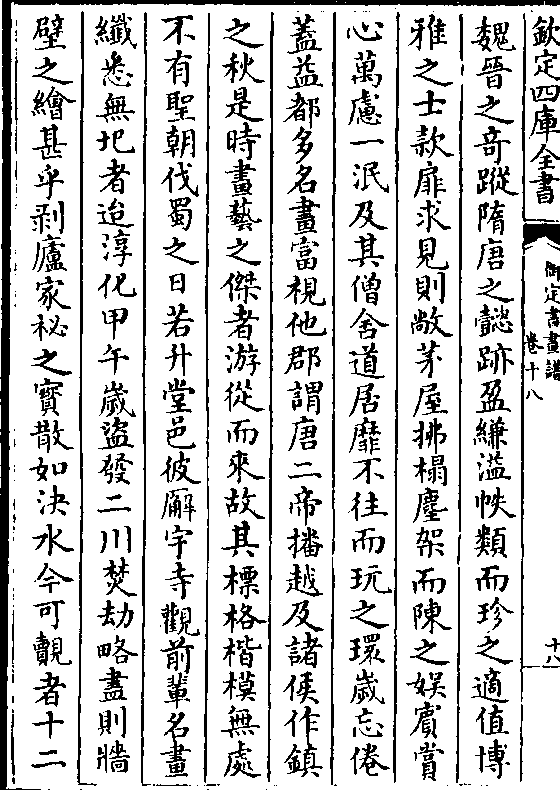 欽定四庫全書
御定書畫譜
卷十八
十八
魏晉之奇蹤隋唐之懿跡盈縑溢帙類而珍之適值博
雅之士款扉求見則敞茅屋拂榻塵架而陳之娛賓賞
心萬慮一泯及其僧舍道居靡不往而玩之環歲忘倦
蓋益都多名畫富視他郡謂唐二帝播越及諸侯作鎮
之秋是時畫藝之傑者游從而來故其標格楷模無處
不有聖朝伐蜀之日若升堂邑彼廨宇寺觀前輩名畫
纖悉無圮者迨淳化甲午歲盜發二川焚劫略盡則牆
壁之繪甚乎剥廬家秘之寳散如決水今可覩者十二